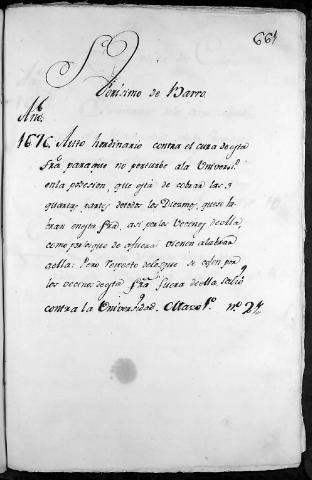 664
Sn Verisimo de Barro
Año
1676. Auto hordinario contra el cura de qta
frª paraque no perturbe ala Univers.d
enla posesion, que qtà de cobrar las 3
quartas partes detodos los Diezmos, quese la
bran enqta frª, asi por los vecinos de ella,
como porlosque de afuera vienen alabrar
aella: Pero respecto delosque se cojen por
los vecinos de qta frª fuera de ella, salió
contra la Universidad. Maço 1º. nº. 24